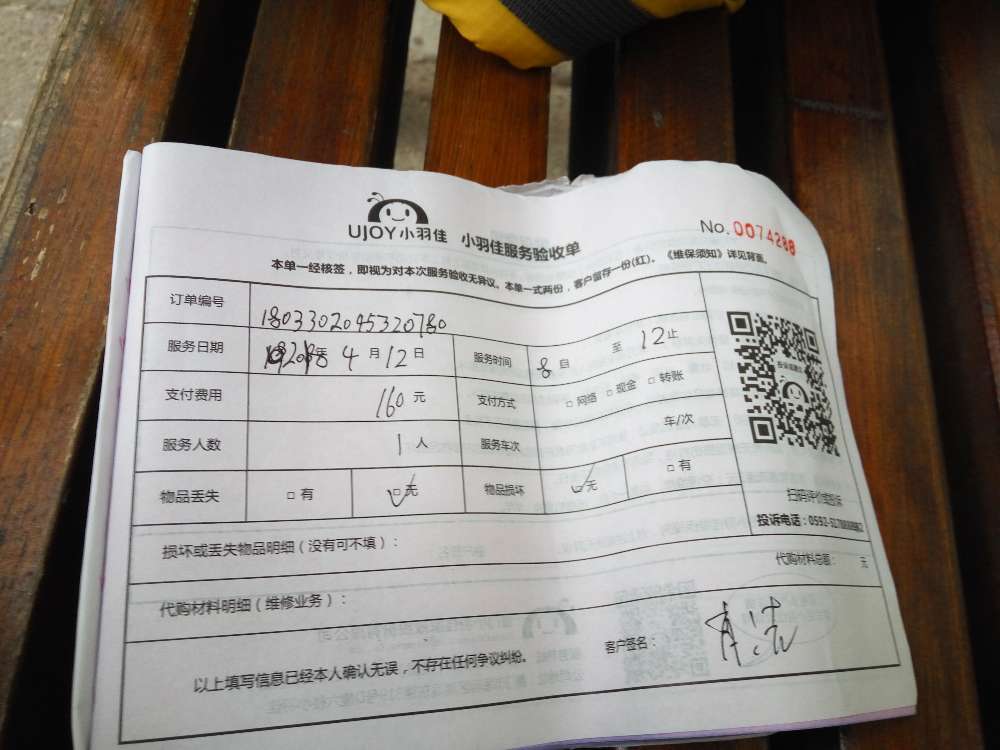 UJOY小羽佳 小羽佳服务验收单 No.0074288
本单一经核签，即视为对本次服务验收无异议。本单一式两份，客户留存一份(红)。《维保须知》详见背面。
订单编号 1803302045320780
服务日期 2018年4月12日 服务时间 8自 至12止
支付费用 160元 支付方式 □网络 □现金 □转账
服务人数 1人 服务车次 车/次
物品丢失 □有 □无 物品损坏 □无 □有
扫码评价或投诉
投诉电话：0592-
损坏或丢失物品明细（没有可不填）：
代购材料明细（维修业务）： 代购材料总额： 元
以上填写信息已经本人确认无误，不存在任何争议纠纷。 客户签名：